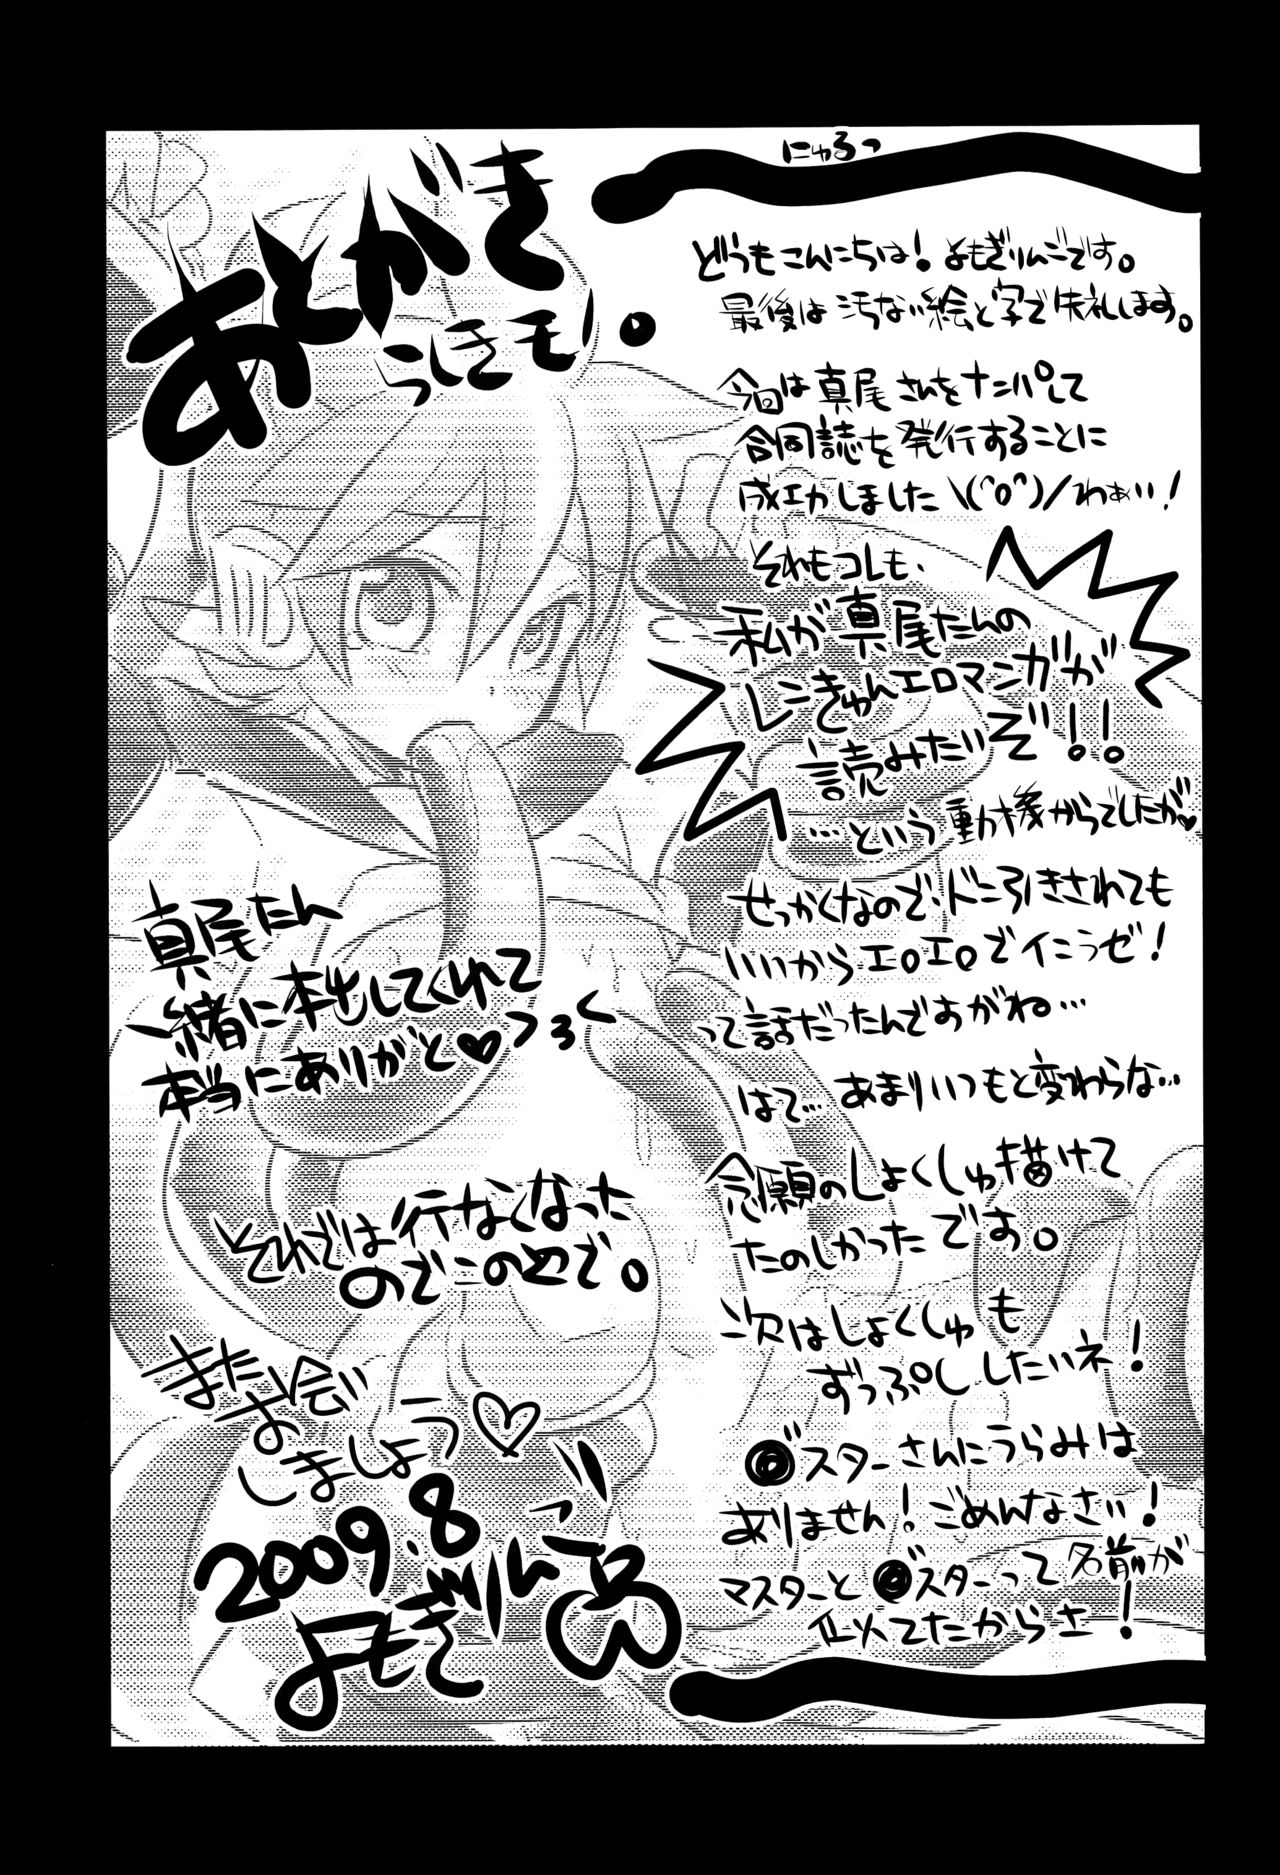 にゅるっ
あとがき
らしきモノ。
どうもこんにちは！よもぎりんごです。
最後は汚ない絵と字で失礼します。
今回は真尾さんをナンパして
合同誌を発行することに
成功しました\(^o^)/わぁい！
それもコレも、
私が真尾たんの
レンきゅんエロマンガが
読みたいぞ!!
…という動機からでしたが♥
せっかくなので、ドン引きされても
いいからエロエロでイこうゼ！
って話だったんですがね…
はて…あまりいつもと変わらな…
念願のしょくしゅ描けて
たのしかったです。
次はしょくしゅも
ずっぷししたいネ！
◎゛スターさんにうらみは
ありません！ごめんなさい！
マスターと◎゛スターって名前が
似てたからさ！
真尾たん
一緒に本出してくれて
本当にありがと♡
それでは行なくなった
のでこのへで。
また
お会い
しましょう♡
2009.8
よもぎりんご